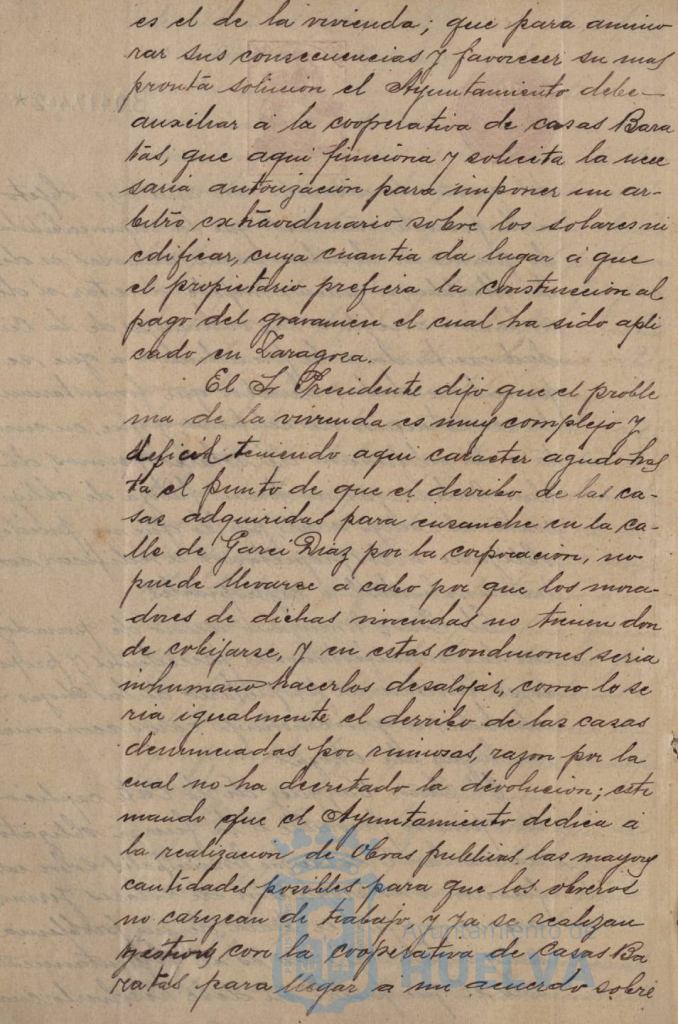 es el de la vivienda; que para amino
rar sus consecuencias y favorecer su mas
pronta solucion el Ayuntamiento debe
auxiliar á la cooperativa de casas Bara
tas, que aqui funciona y solicita la nece
saria autorización para imponer un ar-
bitro extraordinario sobre los solares ni
edificar, cuya cuantia da lugar á que
el propietario prefiera la construccion al
pago del gravamen el cual ha sido apli
cado en Zaragoza.
El Sr Presidente dijo que el proble
ma de la vivienda es muy complejo y
dificil teniendo aqui caracter agudo has
ta el punto de que el derribo de las ca-
sas adquiridas para ensanche en la ca-
lle de Garci Diaz por la corporacion, no
puede llevarse a cabo por que los mora-
dores de dichas viviendas no tienen don
de cobijarse, y en estas condiciones seria
inhumano hacerlos desalojar, como lo se
ria igualmente el derribo de las casas
denunciadas por ruinosas, razon por la
cual no ha decretado la devolucion; esti
mando que el Ayuntamiento dedica á
la realizacion de Obras publicas las mayores
cantidades posibles para que los obreros
no carezcan de trabajo, y ya se realizan
gestiones con la cooperativa de Casas Ba
ratas para llegar a un acuerdo sobre
Ayuntamiento de
HUELVA